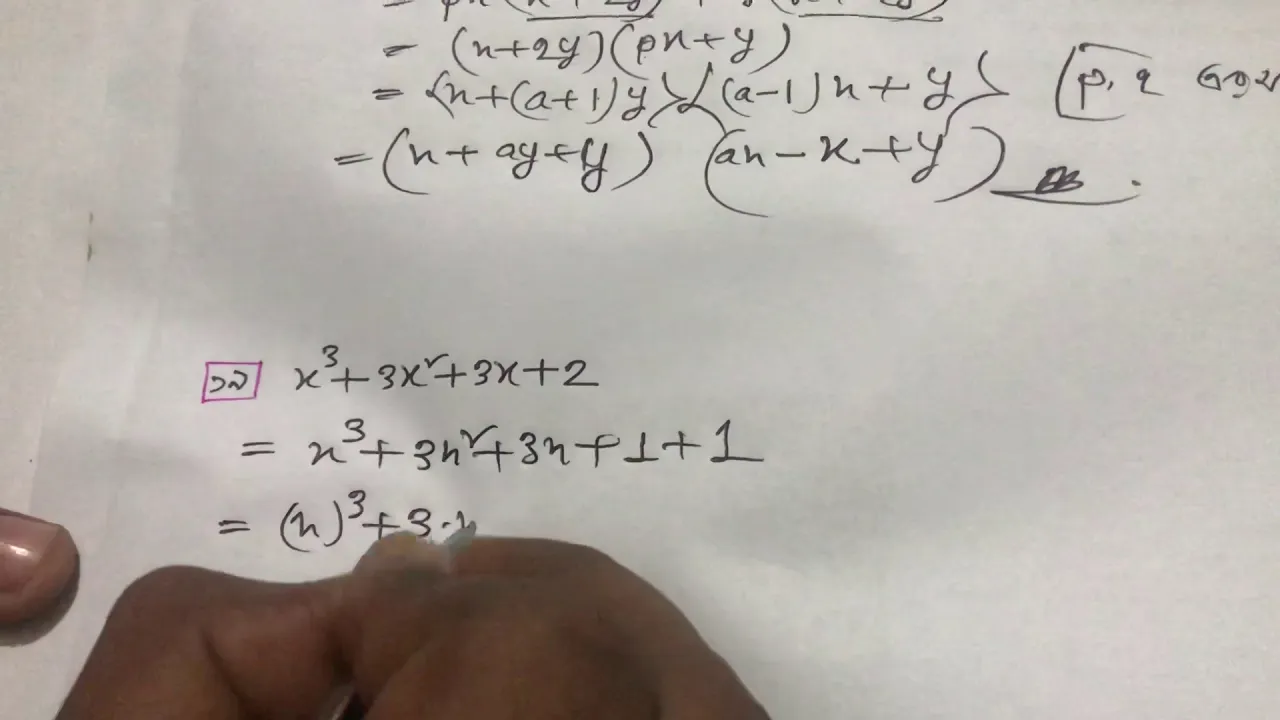 = (x+2y)(px+y)
= {x+(a+1)y}{(a-1)x+y} [p, q
= (x+ay+y) (ax-x+y)
১৯ x³+3x²+3x+2
= x³+3x²+3x+1+1
= (x)³+3.x